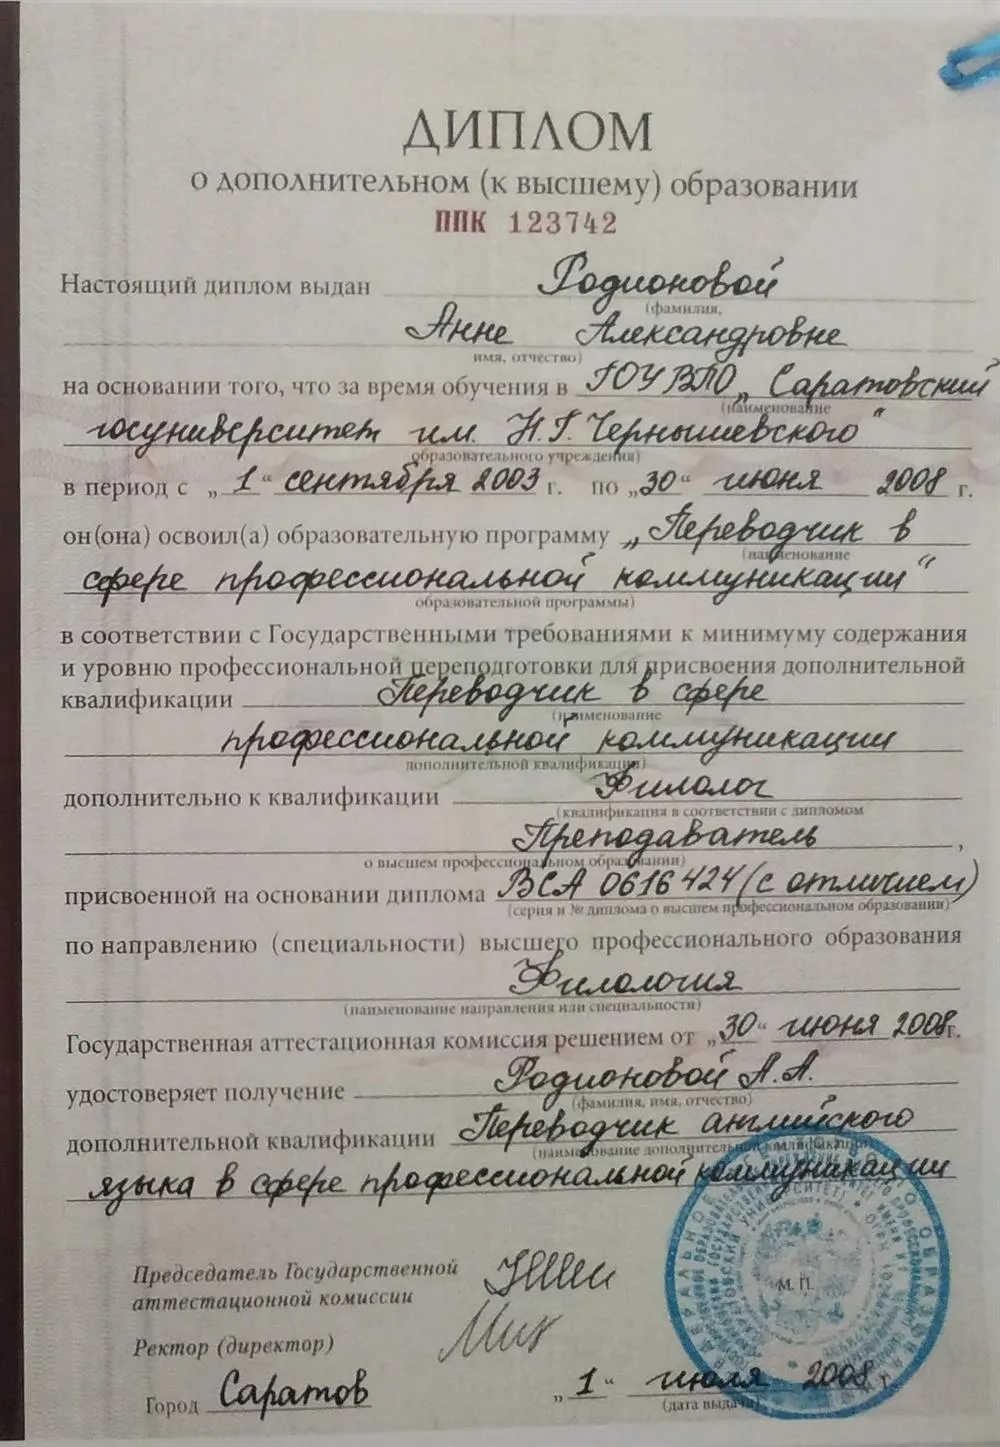 ДИПЛОМ
о дополнительном (к высшему) образовании
ППК 123742
Настоящий диплом выдан Родионовой
(фамилия,
Анне Александровне
имя, отчество)
на основании того, что за время обучения в ГОУ ВПО „Саратовский
(наименование
госуниверситет им. Н.Г. Чернышевского"
образовательного учреждения)
в период с „1" сентября 2003 г. по „30" июня 2008 г.
он(она) освоил(а) образовательную программу „Переводчик в
(наименование
сфере профессиональной коммуникации"
образовательной программы)
в соответствии с Государственными требованиями к минимуму содержания
и уровню профессиональной переподготовки для присвоения дополнительной
квалификации Переводчик в сфере
(наименование
профессиональной коммуникации
дополнительной квалификации)
дополнительно к квалификации Филолог
(квалификация в соответствии с дипломом
Преподаватель ,
о высшем профессиональном образовании)
присвоенной на основании диплома ВСА 0616424 (с отличием)
(серия и № диплома о высшем профессиональном образовании)
по направлению (специальности) высшего профессионального образования
Филология
(наименование направления или специальности)
Государственная аттестационная комиссия решением от „30" июня 2008 г.
удостоверяет получение Родионовой А.А.
(фамилия, имя, отчество)
дополнительной квалификации Переводчик английского
(наименование дополнительной квалификации)
языка в сфере профессиональной коммуникации
Председатель Государственной
аттестационной комиссии
М. П.
Ректор (директор)
Город Саратов „1" июля 2008 г.
(дата выдачи)